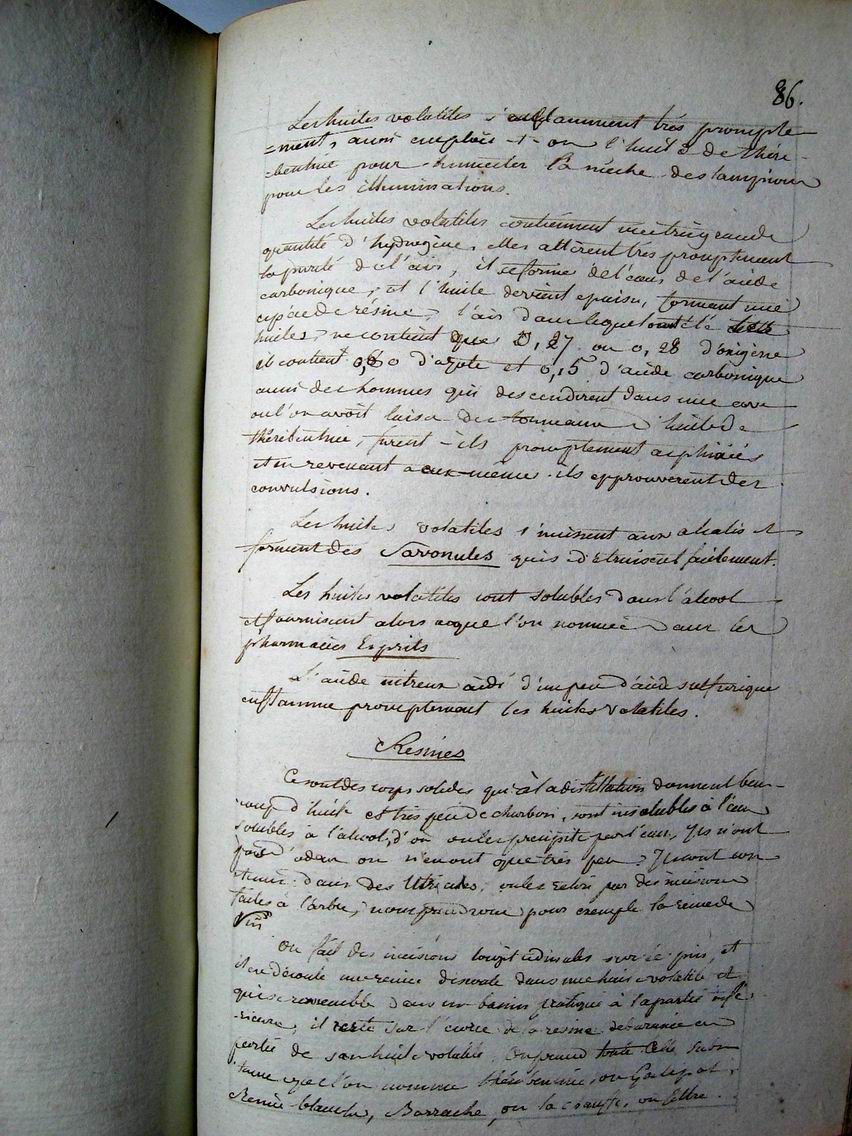 86.
Les huiles volatiles s'enflamment très prompte
=ment, aussi emploie-t-on l'huile de théré-
-bentine pour humecter la mèche des lampions
pour les illuminations.
Les huiles volatiles contiennent une très grande
quantité d'hydrogène, elles altèrent très promptement
la pureté de l'air, il se forme de l'eau, de l'acide
carbonique, et l'huile devient epaisse, formant une
espèce de résine, l'air dans lequel ont été
huiles, ne contient que 0,27 ou 0,28 d'oxigène
il contient 0,60 d'azote et 0,15 d'acide carbonique
aussi des hommes qui descendirent dans une cave
ou l'on avoit laissé des tonneaux d'huile de
thérébentine, furent-ils promptement asphixiés
et en revenant a eux-mêmes ils epprouverent des
convulsions.
Les huiles volatiles s'unissent aux alcalis et
forment des Savonules qui se détruisent facilement.
Les huiles volatiles sont solubles dans l'alcool
et fournissent alors ce que l'on nomme dans les
pharmacies Esprits
L'acide nitreux aidé d'un peu d'acide sulfurique
enflamme promptement les huiles volatiles.
Résines
Ce sont des corps solides qui à la distillation donnent beau-
-coup d'huile et très peu de charbon, sont insolubles à l'eau
solubles à l'alcool, d'où on les precipite par l'eau, Ils n'ont
point d'odeur ou n'en ont que très peu, Ils sont con
tenus dans des Utricules, on les extrait par des incisions
faites à l'arbre, nous prendrons pour exemple la resine de
Pin
On fait des incisions longitudinales sur ce pin, et
il en découle une resine dissoute dans une huile volatile et
qui se rassemble dans un bassin pratiqué à la partie infé
-rieure, il reste sur l'arbre de la resine debarassée en
partie de son huile volatile. On prend toute cette subs
tance que l'on nomme thérébentine, ou Galipot,
Resine blanche, Barrache, ou la chauffe, on filtre.